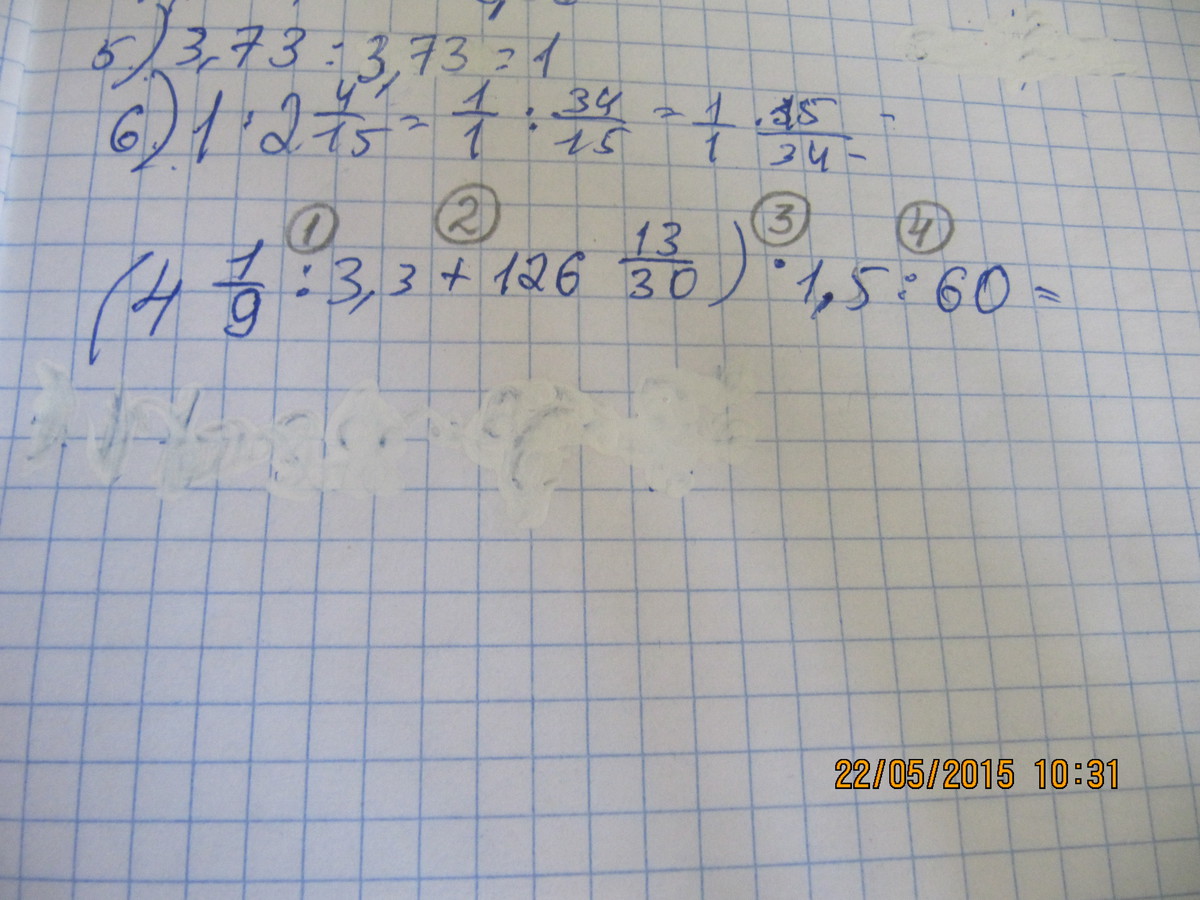 5.) 3,73 : 3,73 = 1
6.) 1 : 2 4/15 = 1/1 : 34/15 = 1/1 · 15/34 =
① ② ③ ④
(4 1/9 : 3,3 + 126 13/30) · 1,5 : 60 =
22/05/2015 10:31